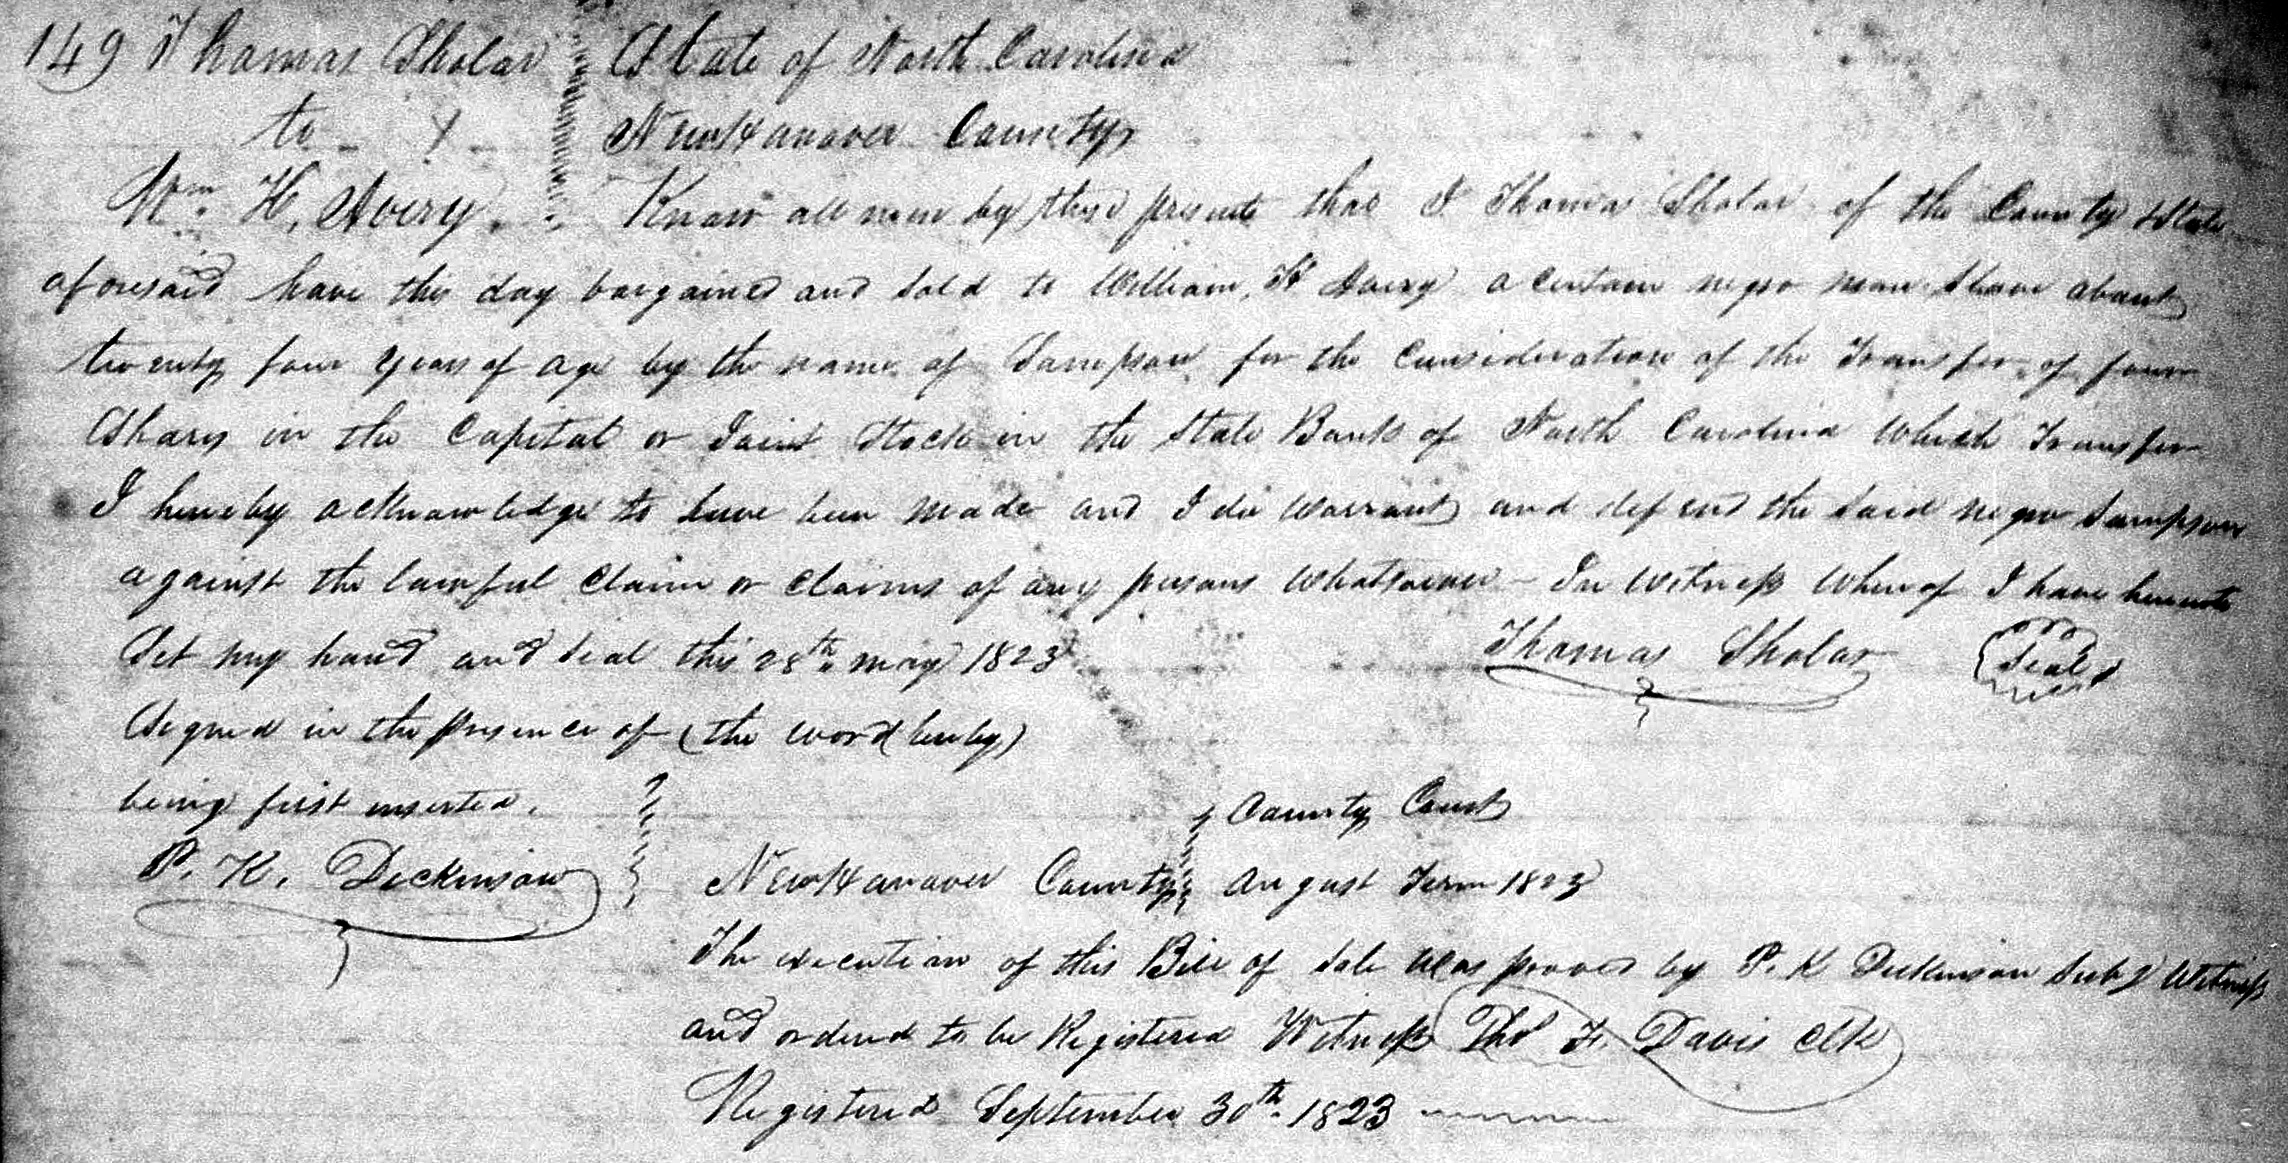 149 Thomas Sholar State of North Carolina
to New Hanover County
Wm. H. Avery. Know all men by these presents that I Thomas Sholar of the County & State
aforesaid have this day bargained and sold to William, H Avery a certain negro man Slave about
twenty four years of age by the name of Sampson for the Consideration of the Transfer of four
Shares in the Capital or Joint Stock in the State Bank of North Carolina Which Transfer
I hereby acknowledge to have been made and I do Warrant and defend the Said negro Sampson
against the lawful Claim or Claims of any persons Whatsoever - In Witness Whereof I have hereunto
Set my hand and Seal this 28th. may 1823 Thomas Sholar Seal
Signed in the presence of (the word hereby)
being first inserted.
P. K. Dickinson
County Court
New Hanover County August Term 1823
The execution of this Bill of Sale Was proved by P. K Dickinson Subs Witness
and ordered to be Registered Witness Thos F. Davis Clk
Registered September 30th. 1823